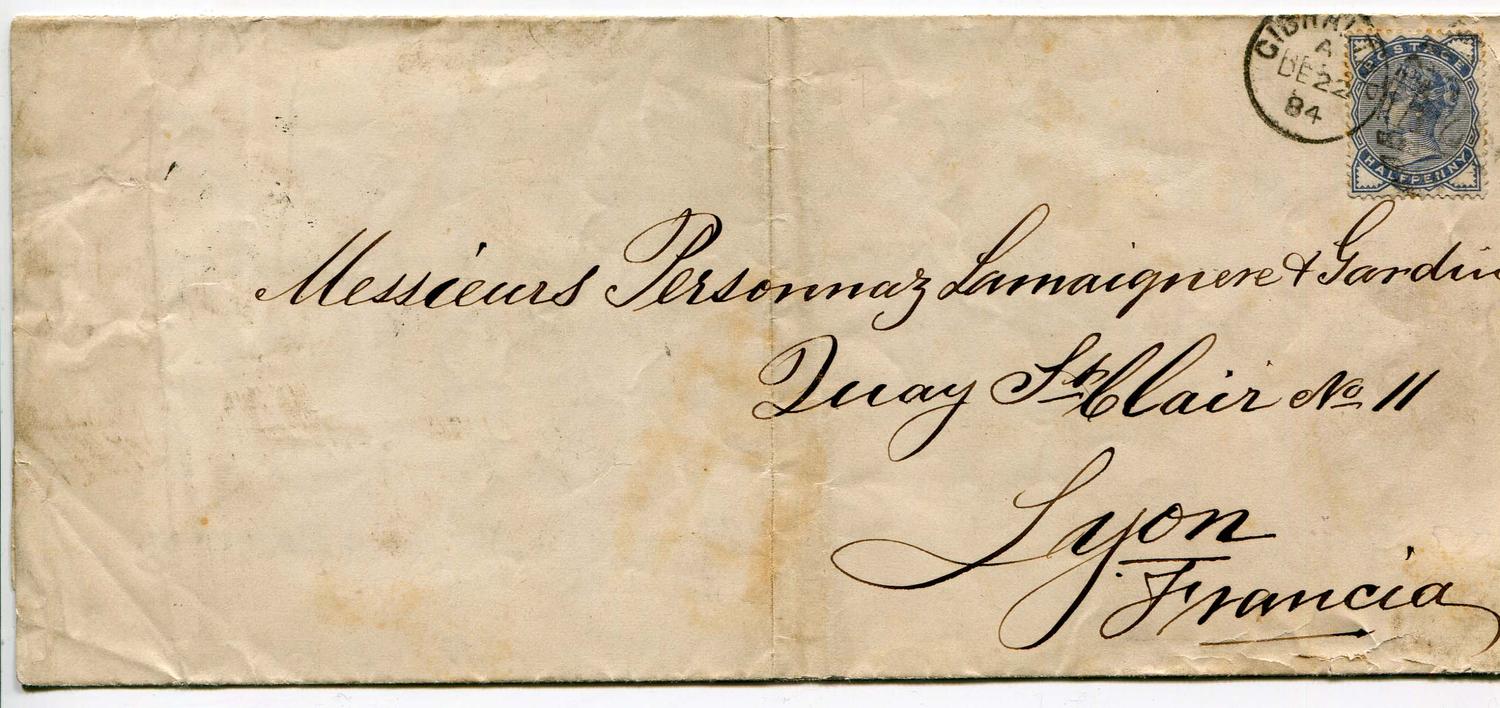 GIBRALT
A
DE 22
84
POSTAGE
HALFPENNY
Messieurs Personnaz Lamaignere & Gardin
Quay St. Clair No 11
Lyon
Francia